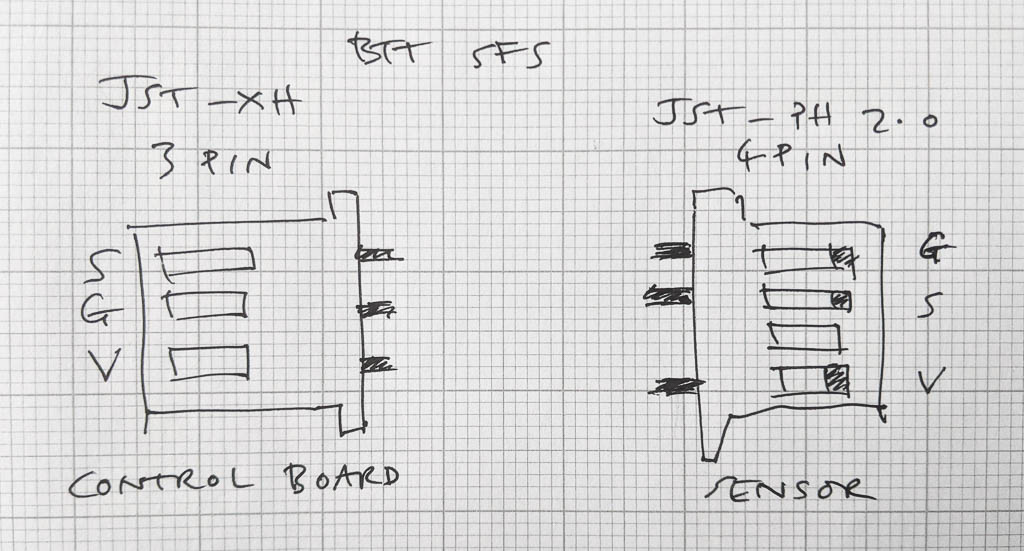 BTT SFS
JST-XH
3 PIN
S
G
V
CONTROL BOARD
JST-PH 2.0
4 PIN
G
S
V
SENSOR